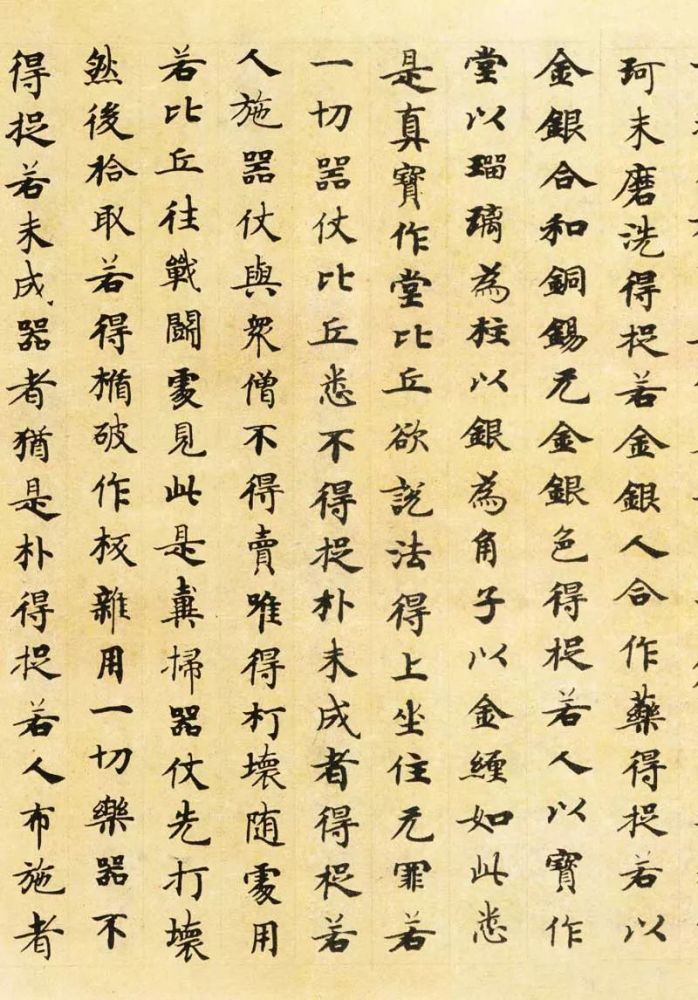 珂末磨洗得捉若金銀人合作藥得捉若以
金銀合和銅錫无金銀色得捉若人以寶作
堂以瑠璃為柱以銀為角子以金纏如此悉
是真寶作堂比丘欲說法得上坐住无罪若
一切器仗比丘悉不得捉朴未成者得捉若
人施器仗與衆僧不得賣唯得打壞隨處用
若比丘往戰鬪處見此是糞掃器仗先打壞
然後拾取若得楯破作板雜用一切樂器不
得捉若未成器者猶是朴得捉若人布施者